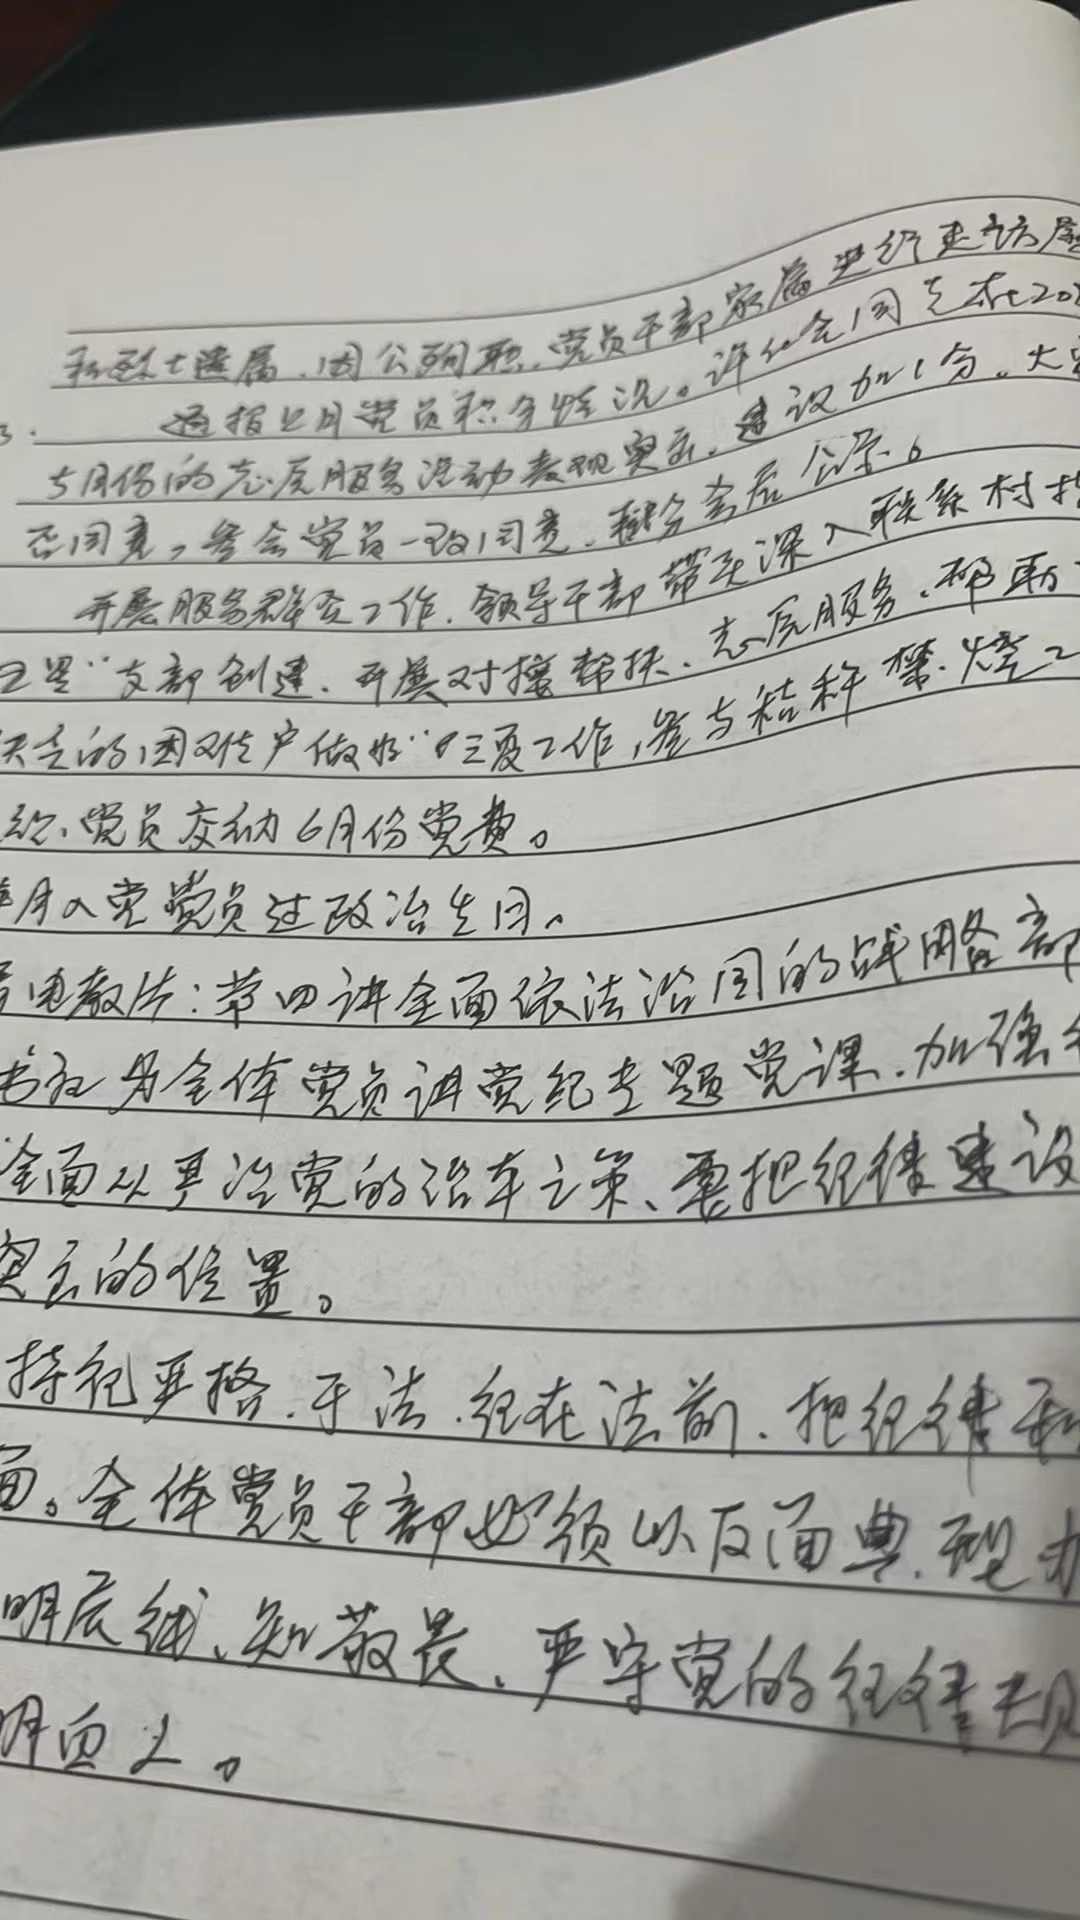 和烈士遗属、因公殉职、党员干部家属进行走访
3. 通报上月党员积分情况。许 同志在20
5月份的志愿服务活动表现突出,建议加1分。大家
否同意,参会党员一致同意,积分会后公示。
开展服务群众工作,领导干部带头深入联系村
五星"支部创建,开展对接帮扶、志愿服务、帮助
的困难户做好"三夏"工作,参与秸秆禁烧工
党员交纳6月份党费。
月入党党员过政治生日。
电教片:第四讲全面依法治国的战略部
书记为全体党员讲党纪专题党课,加强
全面从严治党的治本之策、要把纪律建设
突出的位置。
持纪严格、于法、纪在法前、把纪律和
面。全体党员干部必须以反面典型
明底线、知敬畏、严守党的纪律规
明白人。